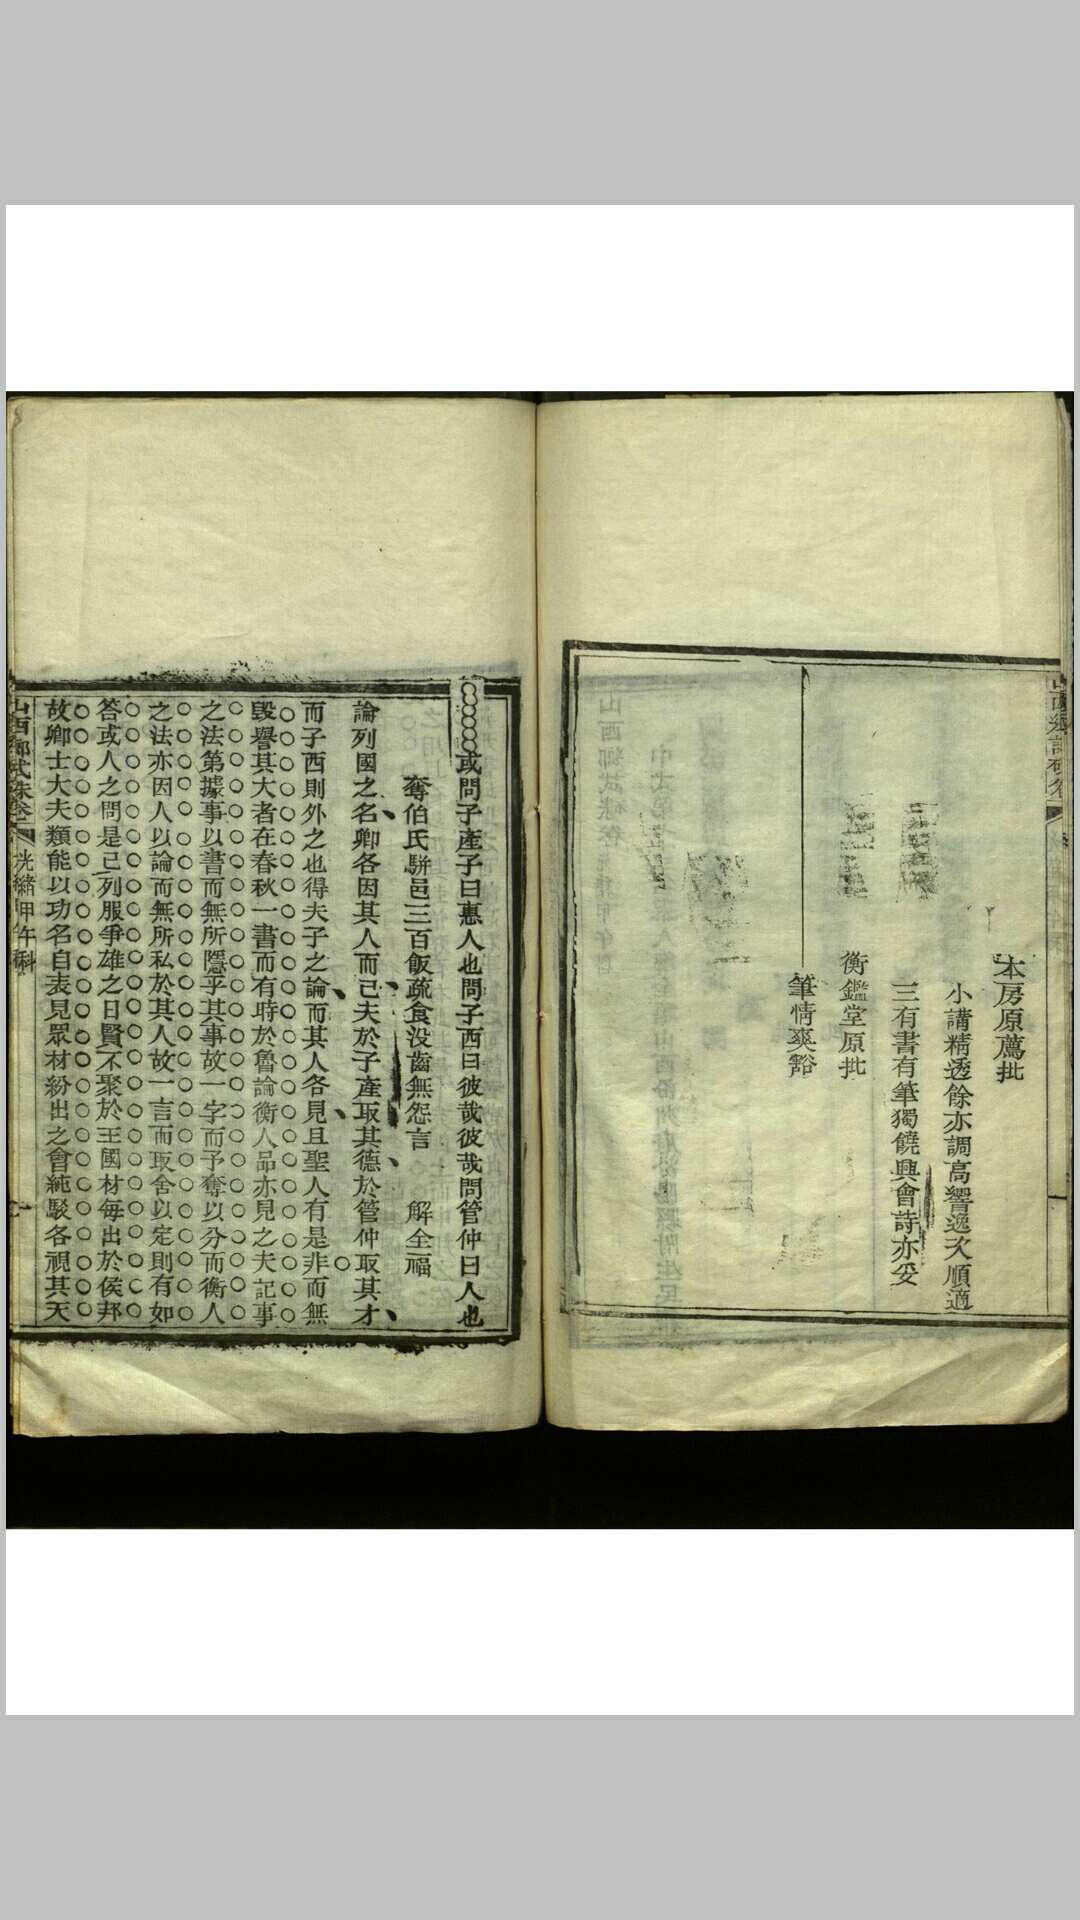 本房原薦批
小講精透餘亦調高響逸次順適
三有書有筆獨饒興會詩亦妥
衡鑑堂原批
筆情爽豁
或問子產子曰惠人也問子西曰彼哉彼哉問管仲曰人也
奪伯氏駢邑三百飯疏食没齒無怨言 解全福
論列國之名卿各因其人而已夫於子產取其德於管仲取其才
而子西則外之也得夫子之論而其人各見且聖人有是非而無
毀譽其大者在春秋一書而有時於魯論衡人品亦見之夫記事
之法第據事以書而無所隱乎其事故一字而予奪以分而衡人
之法亦因人以論而無所私於其人故一言而取舍以定則有如
答或人之問是已列服爭雄之日賢不聚於王國材每出於侯邦
故卿士大夫類能以功名自表見眾材紛出之會純駁各視其天
山西鄉試硃卷 光緒甲午科 一